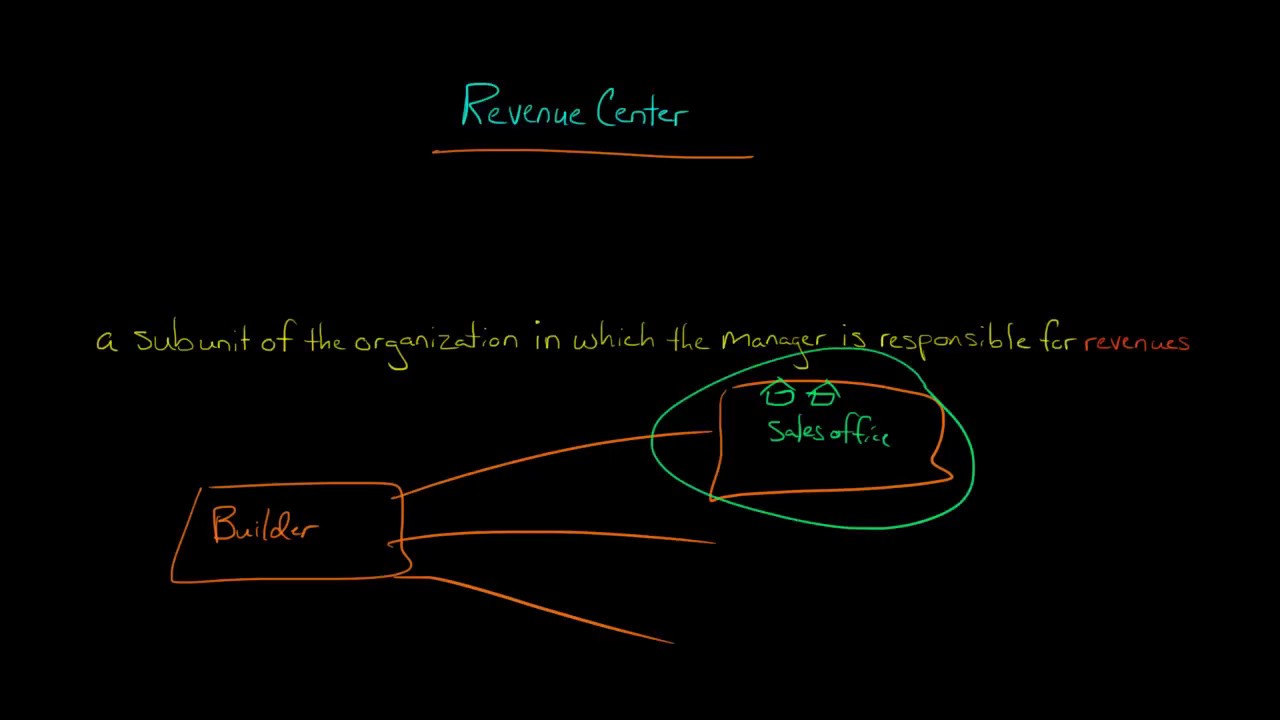 Revenue Center
a subunit of the organization in which the manager is responsible for revenues
Sales office
Builder